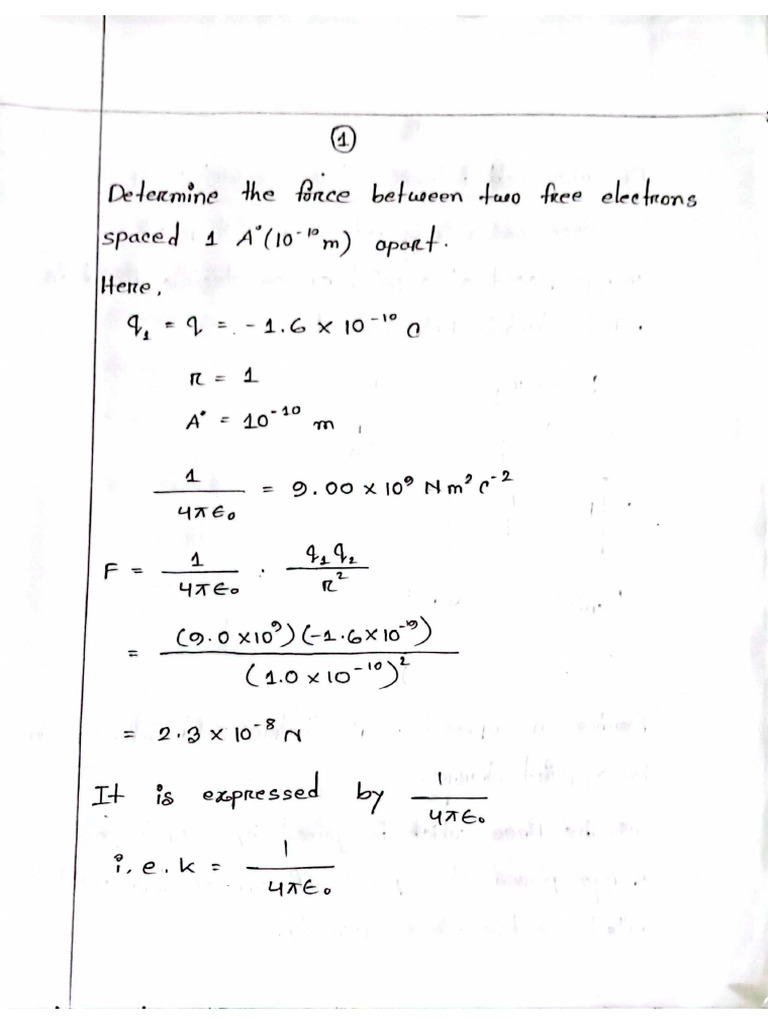 ①
Determine the force between two free electrons
spaced 1 A°(10⁻¹⁰ m) apart.
Here,
q₁ = q = - 1.6 × 10⁻¹⁰ C
r = 1
A° = 10⁻¹⁰ m
1/4πϵ₀ = 9.00 × 10⁹ N m² C⁻²
F = 1/4πϵ₀ · q₁q₂/r²
= (9.0 × 10⁹)(-1.6 × 10⁻¹⁹)/(1.0 × 10⁻¹⁰)²
= 2.3 × 10⁻⁸ N
It is expressed by 1/4πϵ₀
i.e. k = 1/4πϵ₀